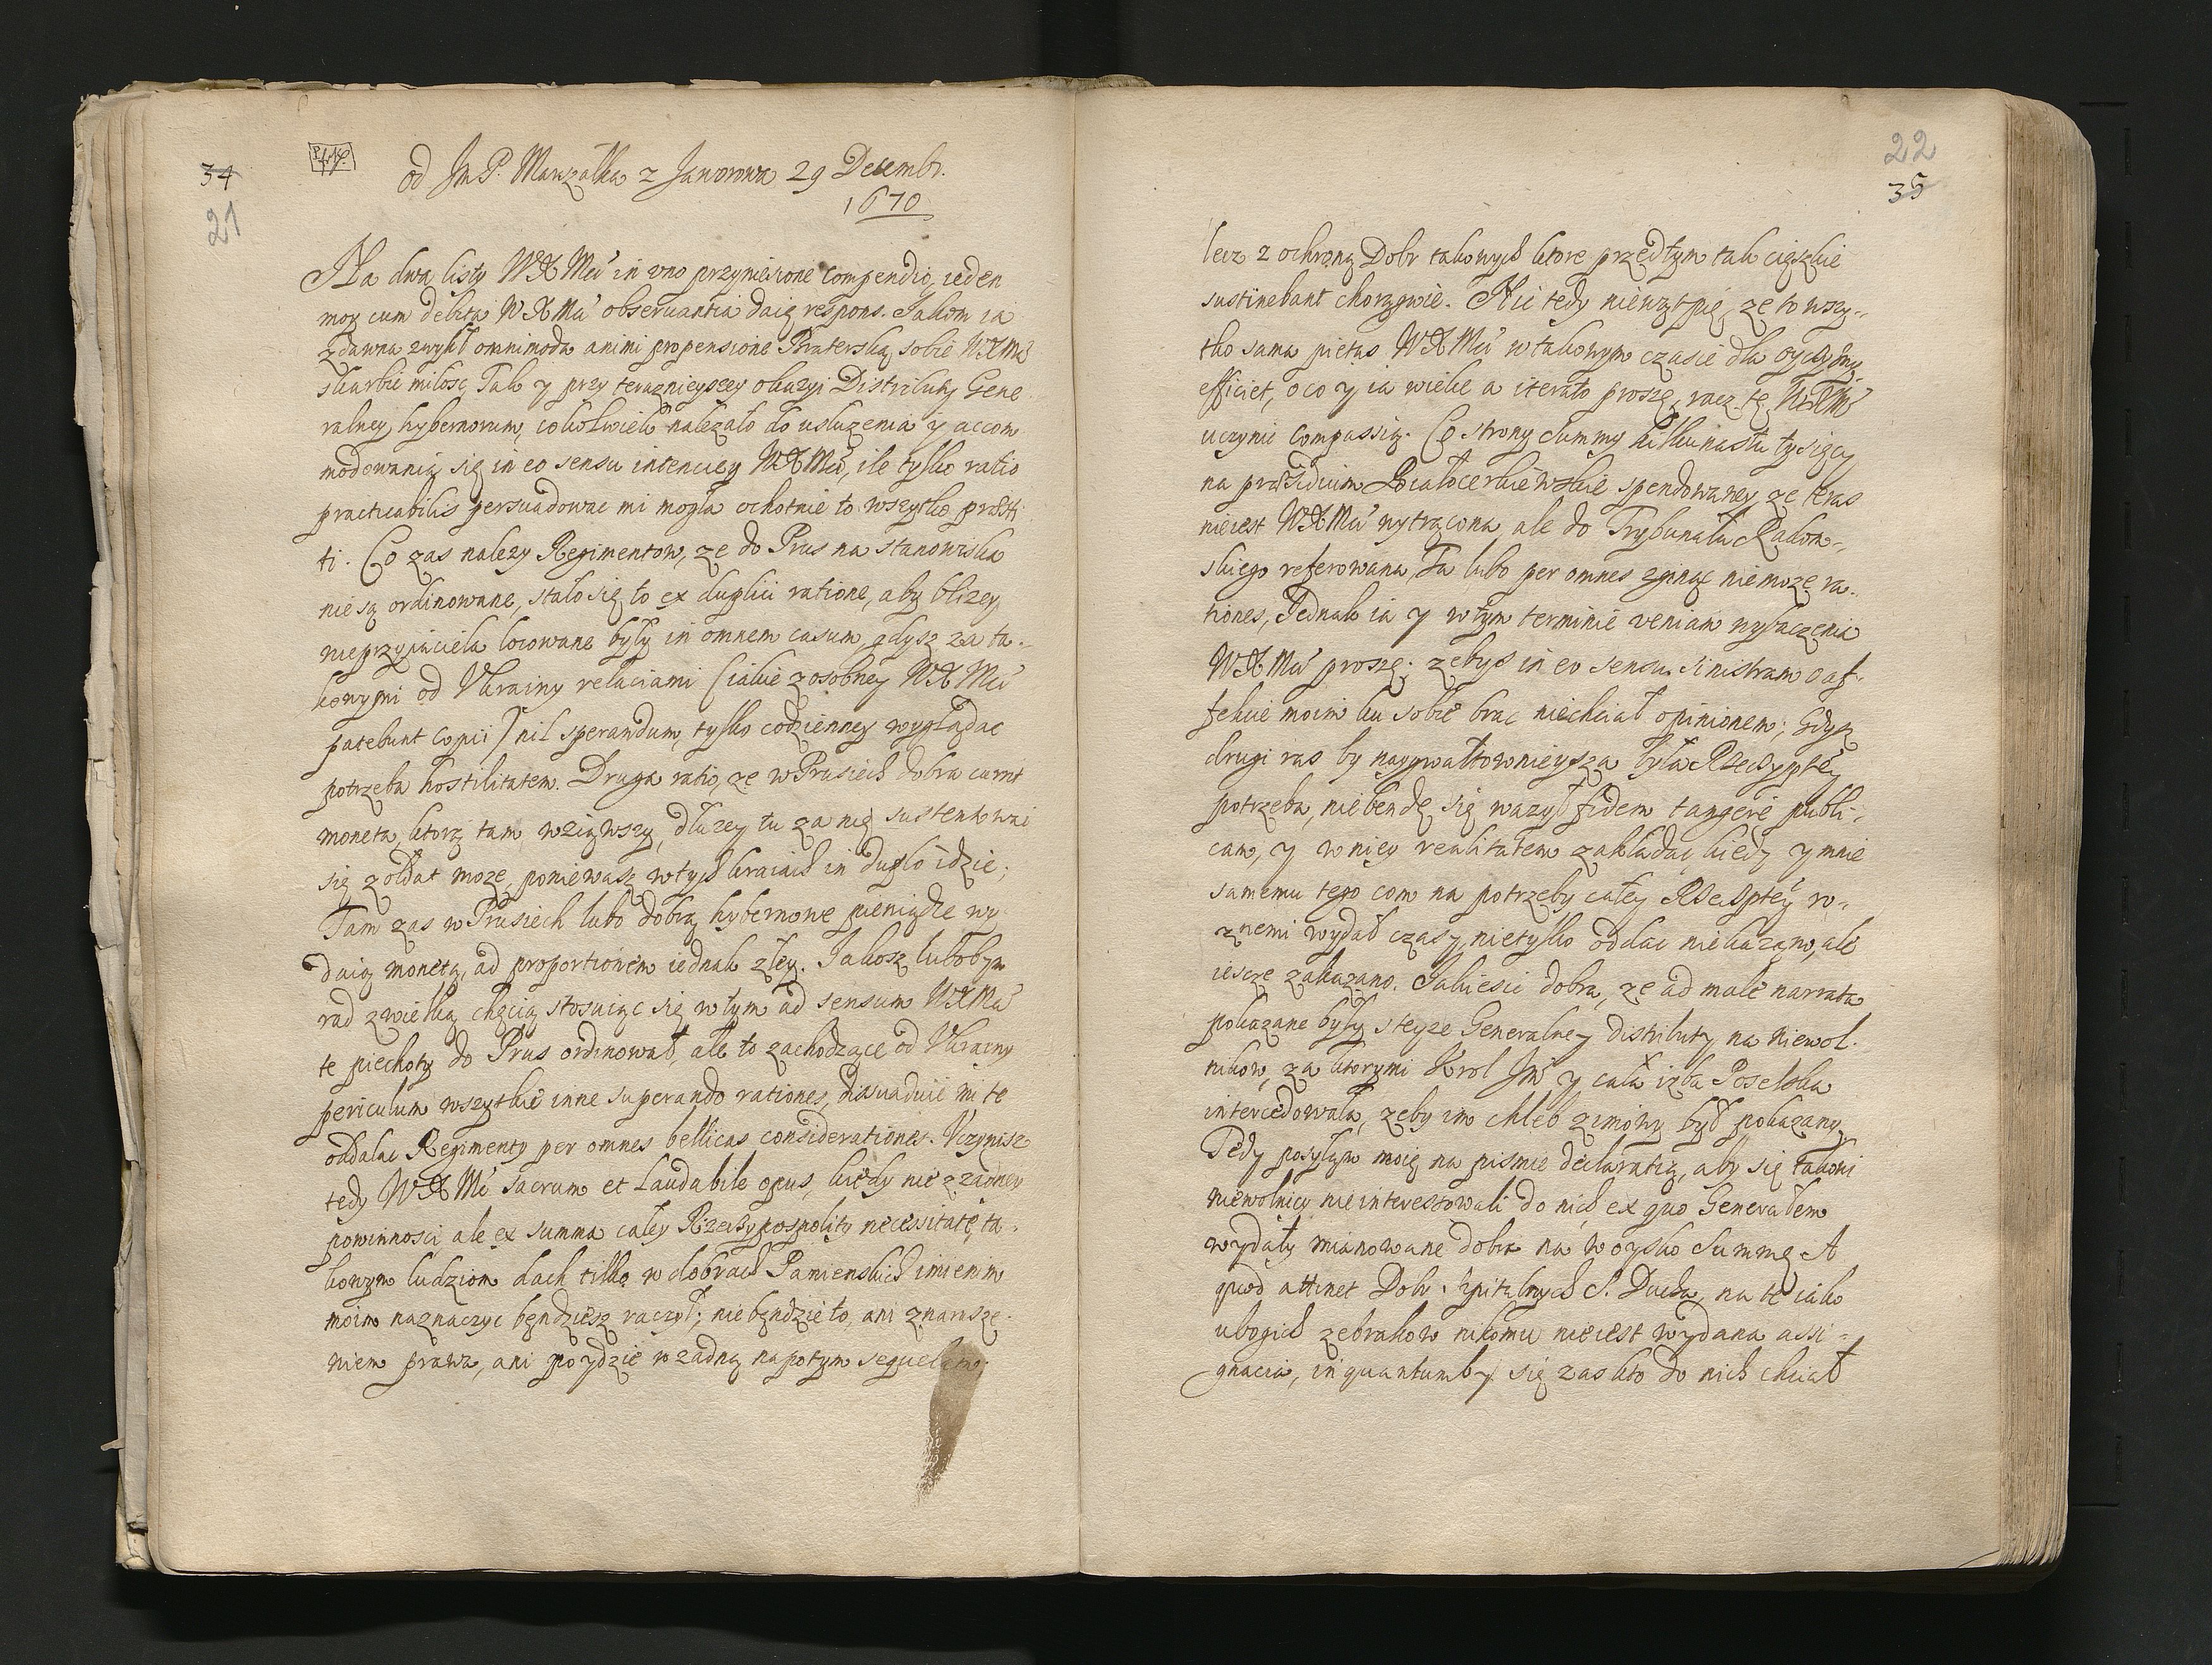 34
21
od Jm P. Marszałka z Jaworowa 29 Decembr.
1670
Na dwa listy WXMci in vno przyniesione compendio, ieden
moy cum debita WXMci obseruantia daię respons. Jakom ia
zdawna zwykł omnimoda animi propensione Braterską sobie WXMci
skarbic miłosc, Tak y przy teraznieyszey okazyi Distributy Gene
ralney hybernorum, cokolwiek nalezało do usłuzenia y accom
modowania się in eo sensu intencyey WXMci, ile tylko ratio
practicabilis persuadowac mi mogła ochotnie to wszytko præsti
ti. Co zas nalezy Regimentow, ze do Prus na stanowiska
nie są ordinowane, stało się to ex duplici ratione, aby blizey
nieprzyiaciela locowane były in omnem casum, gdysz za ta-
kowymi od Vkrainy relaciami (iakie z osobney WXMci
patebunt copii) nil sperandum, tylko codzienney wyglądac
potrzeba hostilitatem. Druga ratio, ze w Prusiech dobra currit
moneta, ktorą tam wziąwszy, dłuzey tu za nię sustentowac
się zołdat moze, poniewasz w tych kraiach in duplo idzie;
Tam zas w Prusiech lubo dobrą hybernowe pieniądze wy
daią monetą, ad proportionem iednak złey. Jakosz lubobym
rad z wielką chęcią stosuiąc się w tym ad sensum WXMci
te piechoty do Prus ordinował, ale to zachodzące od Vkrainy
periculum wszytkie inne superando rationes, dissuaduie mi te
oddalac Regimenty per omnes bellicas considerationes. Vczynisz
tedy WXMć sacrum et laudabile opus, kiedy nie z zadney
powinnosci ale ex summa całey Rzeczypospolity necessitate, ta-
kowym ludziom dach tilko w dobrach Pamienskich imieniem
moim naznaczyc bęndziesz raczył; nie bęndzie to, ani z narusze-
niem prawa, ani poydzie w zadną napotym sequelam.
22
35
lecz z ochroną Dobr takowych ktore przedtym tak cięszkie
sustinebant chorągwie. Nic tedy niewątpię, ze to wszy-
tko sama pietas WXMci w takowym czasie dla oyczyzny
efficiet, o co y ia wielce a iterato proszę, racz tę WXMć
uczynic compassią. Co strony Summy kilkunastu tysięcy
na præsidium Białocerkiewskie spendowaney, ze teras
nieiest WXMci wytrącona, ale do Trybunału Radom-
skiego referowana, Ta lubo per omnes zginąc niemoze ra-
tiones, Jednak ia y w tym terminie veniam wybaczenia
WXMci proszę: zebys in eo sensu sinistram o af-
fekcie moim ku sobie brac niechciał opinionem; Gdysz
drugi ras by naygwałtownieysza była Rzeczyptey
potrzeba, niebendę się wazył fidem tangere publi-
cam, y w niey realitatem zakładac, kiedy y mnie
samemu tego com na potrzeby całey Rzeczyptey ro-
znemi wydał czasy, nietylko oddac niekazano, ale
iescze zakazano. Jakiesci dobra, ze ad male narrata
pokazane były z teyze Generalney distributy na niewol-
nikow, za ktorymi Krol Jmć y cała izba Poselska
intercedowała, zeby im chleb zimowy był pokazany
Tedy posyłym moię na pismie declaratią, aby się takowi
niewolnicy nieinteressowali do nich ex quo Generałem
wydały mianowane dobra na woysko Summę A
quod attinet Dobr szpitalnych S. Ducha, na te iako
ubogich zebrakow nikomu nieiest wydana assi-
gnacia, inquantumby się zas kto do nich chciał